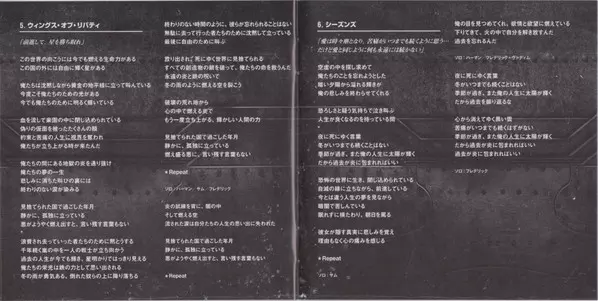 5. ウィングス・オブ・リバティ
「前進して、星を勝ち取れ」
この世界の向こうには今でも燃える生命力がある
この国の外には自由に輝く星がある
俺たちは沈黙しながら黄金の地平線に立って叫んでいる
今夜こそ俺たちのための光がある
今でも俺たちのために明るく輝いている
血を流して楽園の中に閉じ込められている
偽りの仮面を被ったたくさんの顔
約束と苦痛の人生に視界を奪われ
俺たちが立ち上がる時が来たんだ
俺たちの間にある地獄の炎を通り抜け
俺たちの夢の一生
悲しみに満ちた叫びの裏には
終わりのない涙が染みる
見捨てられた国で過ごした年月
静かに、孤独に立っている
悪がようやく燃え出すと、言い残す言葉もない
浪費され去っていった者たちのために黙とうする
千年続く嵐の中を一人の戦士が立ち向かう
過去の人生が今でも騒ぎ、星明かりではっきり見える
俺たちの栄光は鉄の力として思い出される
冬の雨が勇ある、倒れた奴らの上に降り落ちる
終わりのない時間のように、彼らが忘れられることはない
無駄に去って行った者たちのために沈黙して立っている
最後に自由のために叫ぶ
蹴り出されて死に幸せ世界に見捨てられる
すべての創造物の網を破って、俺たちの曲を救うんだ
永遠の炎と鉄の呪いで
冬の雨のように燃える空を裂こう
破壊の荒れ地から
心の中で燃える炎で
もう一度立ち上がる、輝かしい人間の力
見捨てられた国で過ごした年月
静かに、孤独に立っている
燃え盛る悪に、言い残す言葉もない
* Repeat
ソロ:ハーマン サム、フレデリック
炎の試練を背に、闇の中
そして燃える空
流された涙は自分たちの人生の思い出に失われた
見捨てられた国で過ごした年月
静かに、孤独に立っている
悪がようやく燃え出すと、言い残す言葉もない
* Repeat
6. シーズンズ
俺たちのことを忘れようとした
俺の悲しみを終わらせてくれる
恐ろしさと疑う気持ちで泣き叫ぶ
人生が良くなるのを待っている間に
夜に死にゆく言葉
冬がいつまでも続くことはない
季節が過ぎ、また俺の人生に太陽が輝く
だから過去が炎に包まれればいい
恐怖の世界に生き、閉じ込められている
今とは違う人生の夢を見ながら
暗闇で苦しんでいる
眠れずに横たわり、朝日を罵る
彼女が隠す真実に悲しみを覚え
理由もなく心の痛みを感じる
* Repeat
ソロ:サム
俺の目を見つめてくれ、欲情と欲望に燃えている
下りてきて、火の中で自分を解き放すんだ
過去を忘れるんだ
ソロ:ハーマン フレデリック・ヴァディム
夜に死にゆく言葉
冬がいつまでも続くことはない
季節が過ぎ、また俺の人生に太陽が輝く
だから過去を振り返るな
心から消えてゆく黒い雲
苦痛がいつまでも続くはずがない
季節が過ぎ、また俺の人生に太陽が輝く
だから過去が炎に包まれればいい
過去が炎に包まれればいい
ソロ:フレデリック